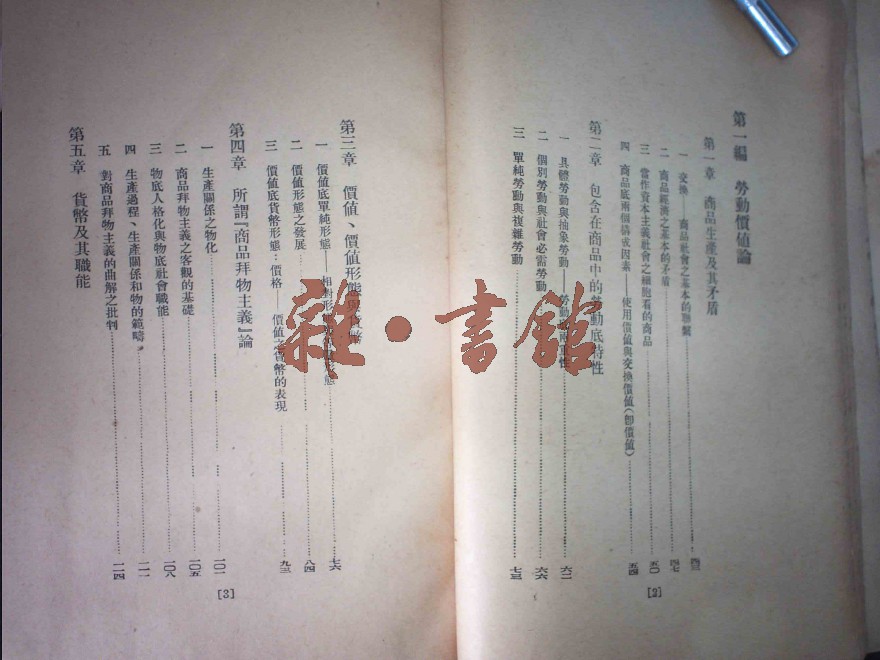 第一編 勞動價値論
第一章 商品生產及其矛盾
一 交換——商品社會之基本的聯繫 四三
二 商品經濟之基本的矛盾 四七
三 當作資本主義社會之細胞看的商品 五〇
四 商品底兩個 或因素——使用價値與交換價値(卽價値) 五四
第二章 包含在商品中的勞動底特性
一 具體勞動與抽象勞動——勞動 六二
二 個別勞動與社會必需勞動 六六
三 單純勞動與複雜勞動 七三
[2]
第三章 價値、價値形態與貨幣
一 價値底單純形態——相對形 態 七六
二 價値形態之發展 八四
三 價値底貨幣形態:價格——價値之貨幣的表現 九三
第四章 所謂『商品拜物主義』論
一 生產關係之物化 一〇二
二 商品拜物主義之客觀的基礎 一〇五
三 物底人格化與物底社會職能 一〇八
四 生產過程、生產關係和物的範疇
五 對商品拜物主義的曲解之批判 一一四
第五章 貨幣及其職能
[3]
雜·書館